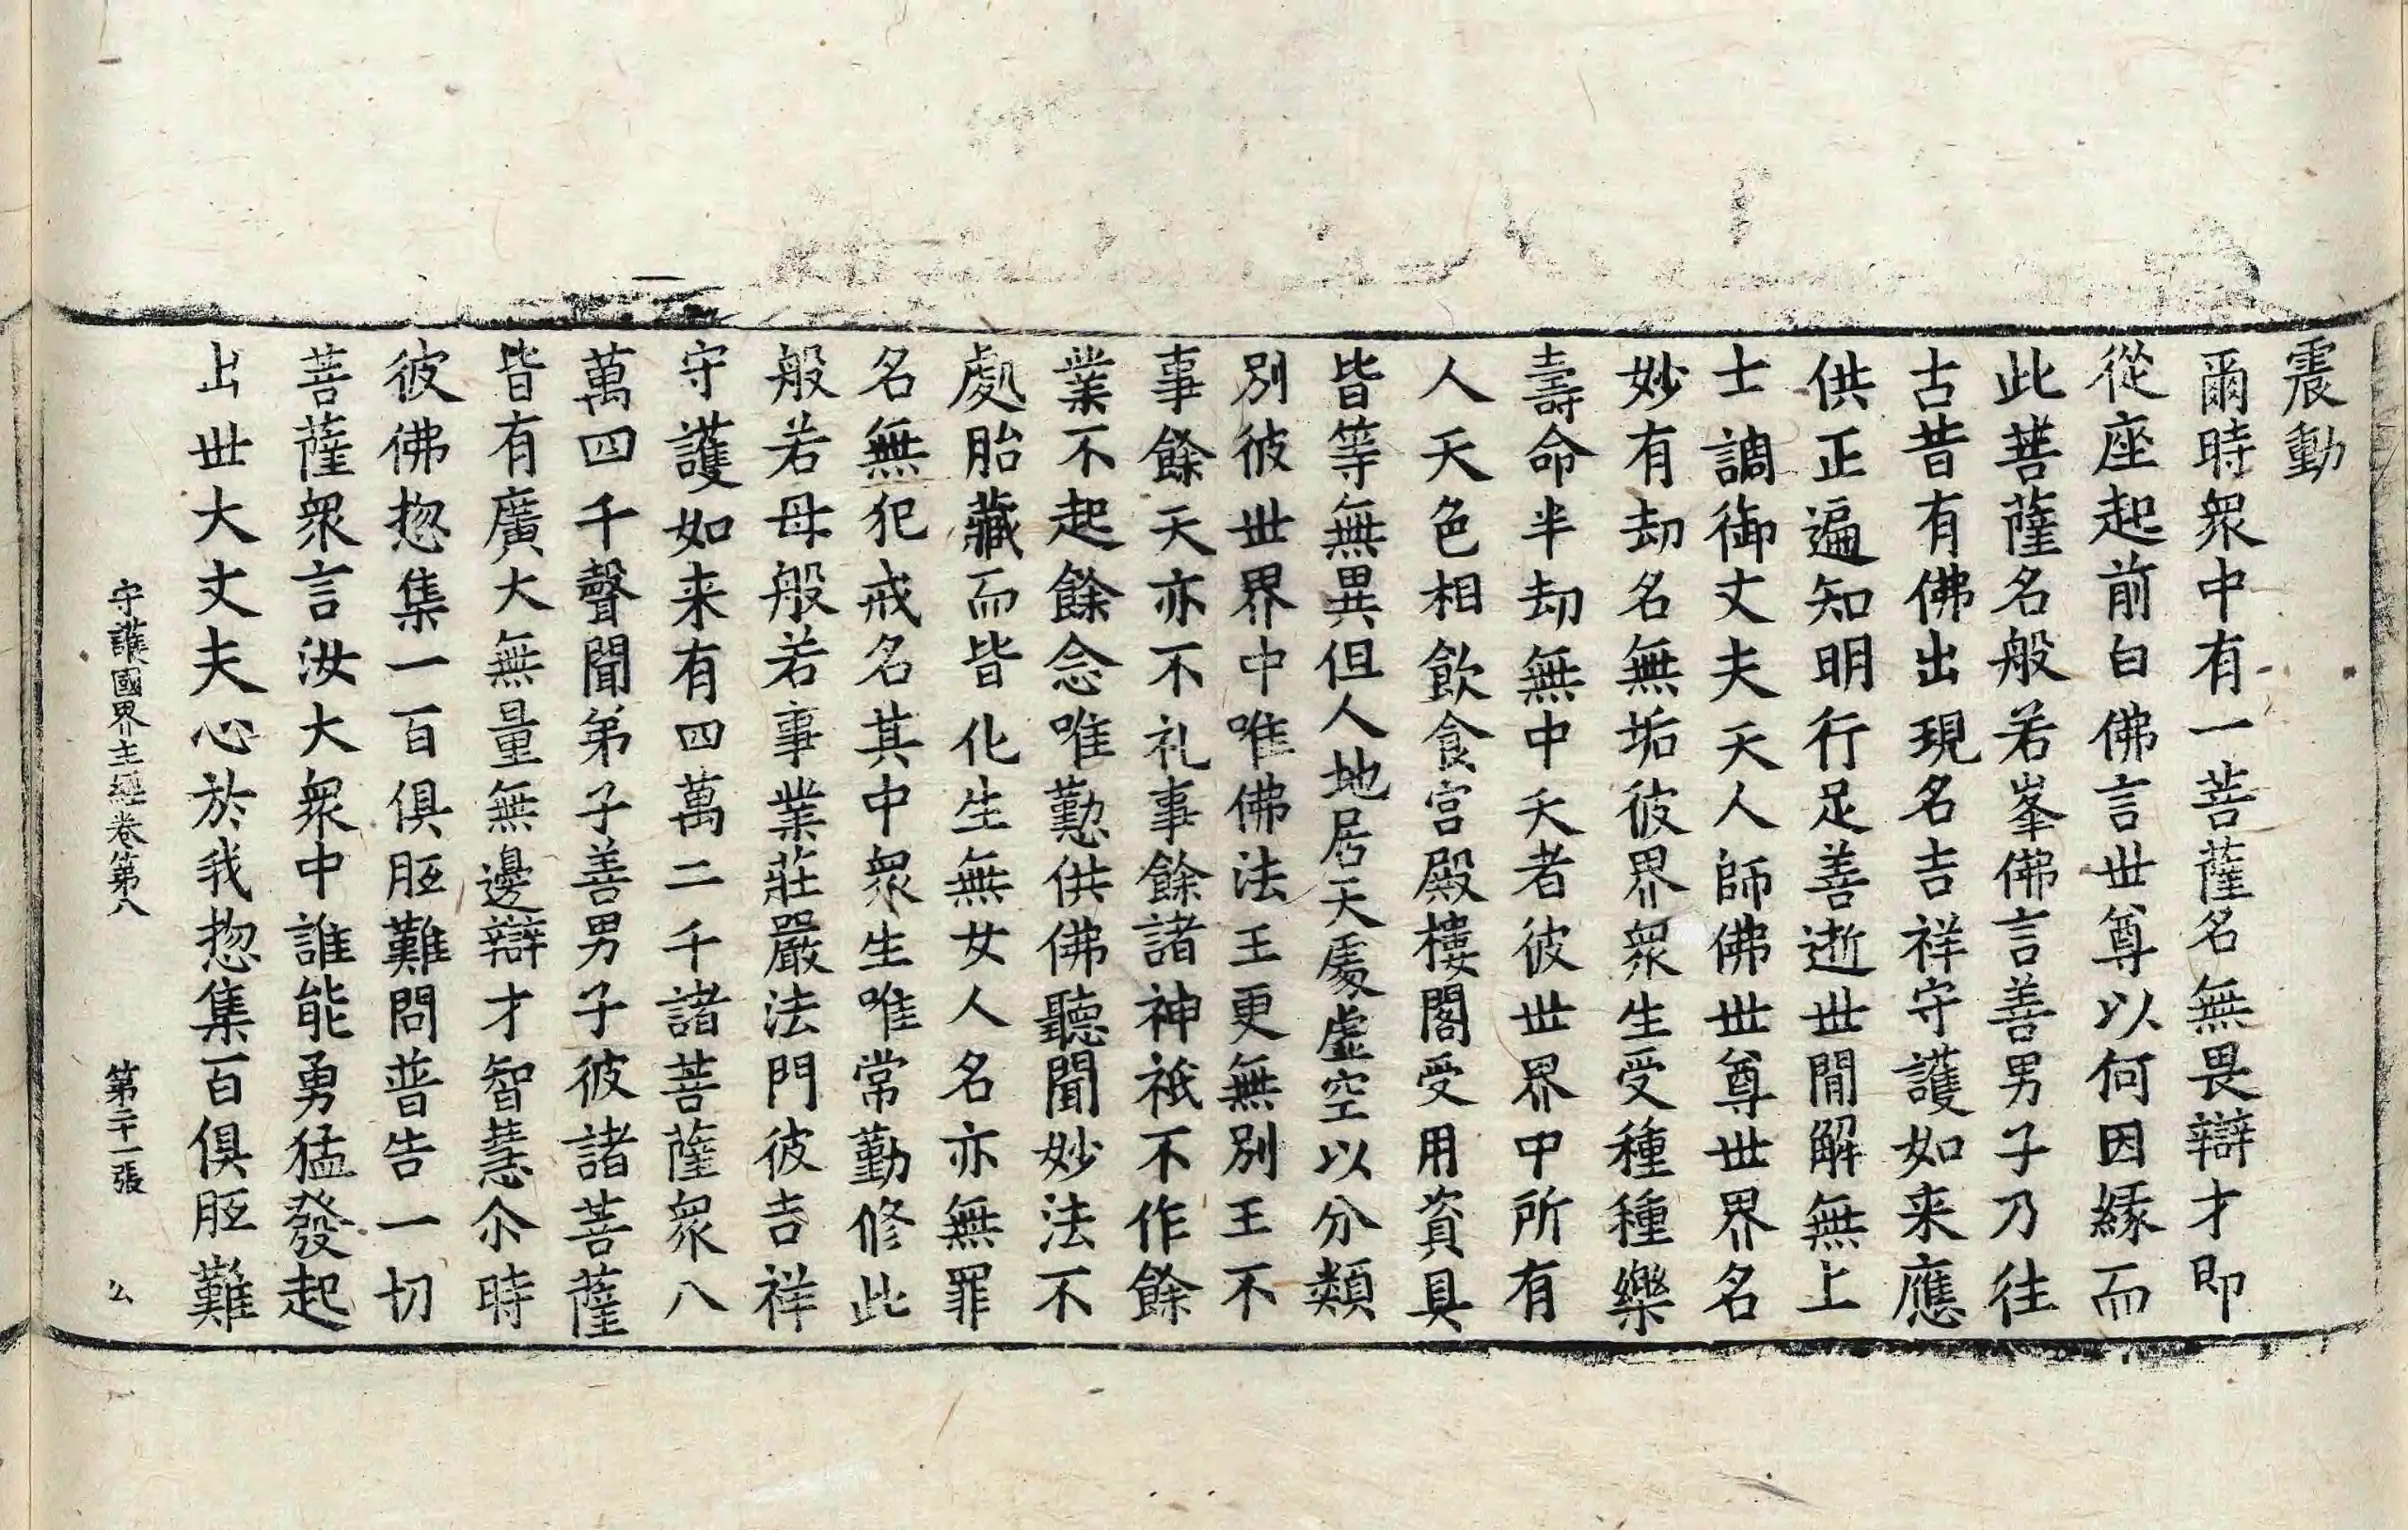 震動
爾時衆中有一菩薩名無畏辯才即
從座起前白佛言世尊以何因緣而
此菩薩名般若峯佛言善男子乃往
古昔有佛出現名吉祥守護如来應
供正遍知明行足善逝世間解無上
士調御丈夫天人師佛世尊世界名
妙有劫名無垢彼界衆生受種種樂
壽命半劫無中夭者彼世界中所有
人天色相飲食宮殿樓閣受用資具
皆等無異但人地居天處虛空以分類
別彼世界中唯佛法王更無別王不
事餘天亦不礼事餘諸神祇不作餘
業不起餘念唯勤供佛聽聞妙法不
處胎藏而皆化生無女人名亦無罪
名無犯戒名其中衆生唯常勤修此
般若母般若事業莊嚴法門彼吉祥
守護如来有四萬二千諸菩薩衆八
萬四千聲聞弟子善男子彼諸菩薩
皆有廣大無量無邊辯才智慧尒時
彼佛揔集一百俱胝難問普告一切
菩薩衆言汝大衆中誰能勇猛發起
出世大丈夫心於我揔集百俱胝難
守護國界主經卷第八 第二十一張 公